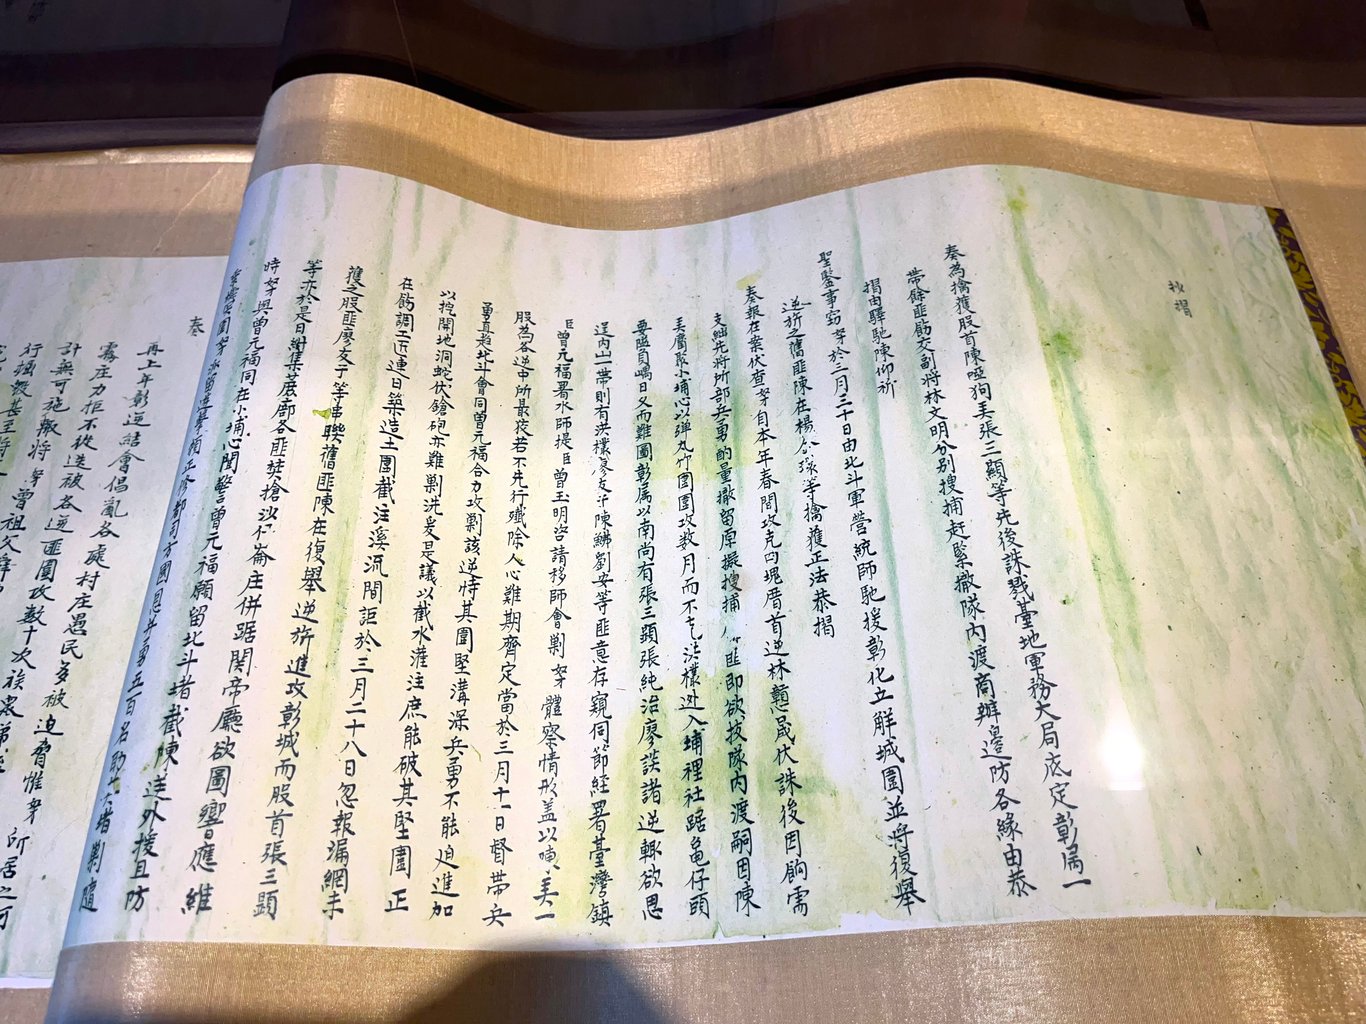 抄摺
奏為擒獲股首陳啞狗美張三顯等先後誅戮臺地軍務大局底定彰属一
帶餘匪飭交副將林文明分別搜捕赶緊撤隊內渡商辦邊防各緣由恭
摺由驛馳陳仰祈
聖鑒事窃奴才於三月三十日由北斗軍營統師馳援彰化立解城圍並將復舉
逆折之舊匪陳在楊 等擒獲正法恭摺
奏報在案伏查奴才自本年春間攻克四塊厝首逆林戇晟伏誅後因餉需
支絀先將所部兵勇酌量撤留原擬搜捕 匪即欲拔隊內渡嗣因陳
美屬聚小埔心以弹丸竹圍圍攻数月而不克洪欉逃入埔裡社踞龜仔頭
要隘負嵎日久而難圖彰属以南尚有張三顯張純治廖談諸逆輒欲思
逞內山一帶則有洪欉廖友于陳鯡劉安等匪意存窺伺節經署臺灣鎮
臣曾元福署水師提臣曾玉明咨請移師會剿奴才體察情形盖以啞美一
股為各逆中所最狡若不先行殲除人心難期齊定當於三月十一日督帶兵
勇直趋北斗會同曾元福合力攻剿該逆恃其圍堅溝深兵勇不能迫進加
以挖開地洞蛇伏鎗砲亦難剿洗爰是議以截水灌注庶能破其堅圍正
在飭調工匠連日築造土圍截注溪流間詎於三月二十八日忽報漏網未
獲之股匪廖友于等串聯舊匪陳在復舉逆折進攻彰城而股首張三顯
等亦於是日糾集 部各匪焚搶沙仔崙庄併踞関帝廳欲圖響應維
時奴才與曾元福同在小埔心聞警曾元福願留北斗堵截陳逆外援且防
 圍奴才 都司方國恩 勇五百名助其堵剿隨
奏
再上年彰逆結會倡亂各處村庄愚民多被迫脅惟奴才所居之阿
霧庄力拒不從迭被各逆匪圍攻数十次族衆
計無可施輙將奴才曾祖父
行殘毀甚至將